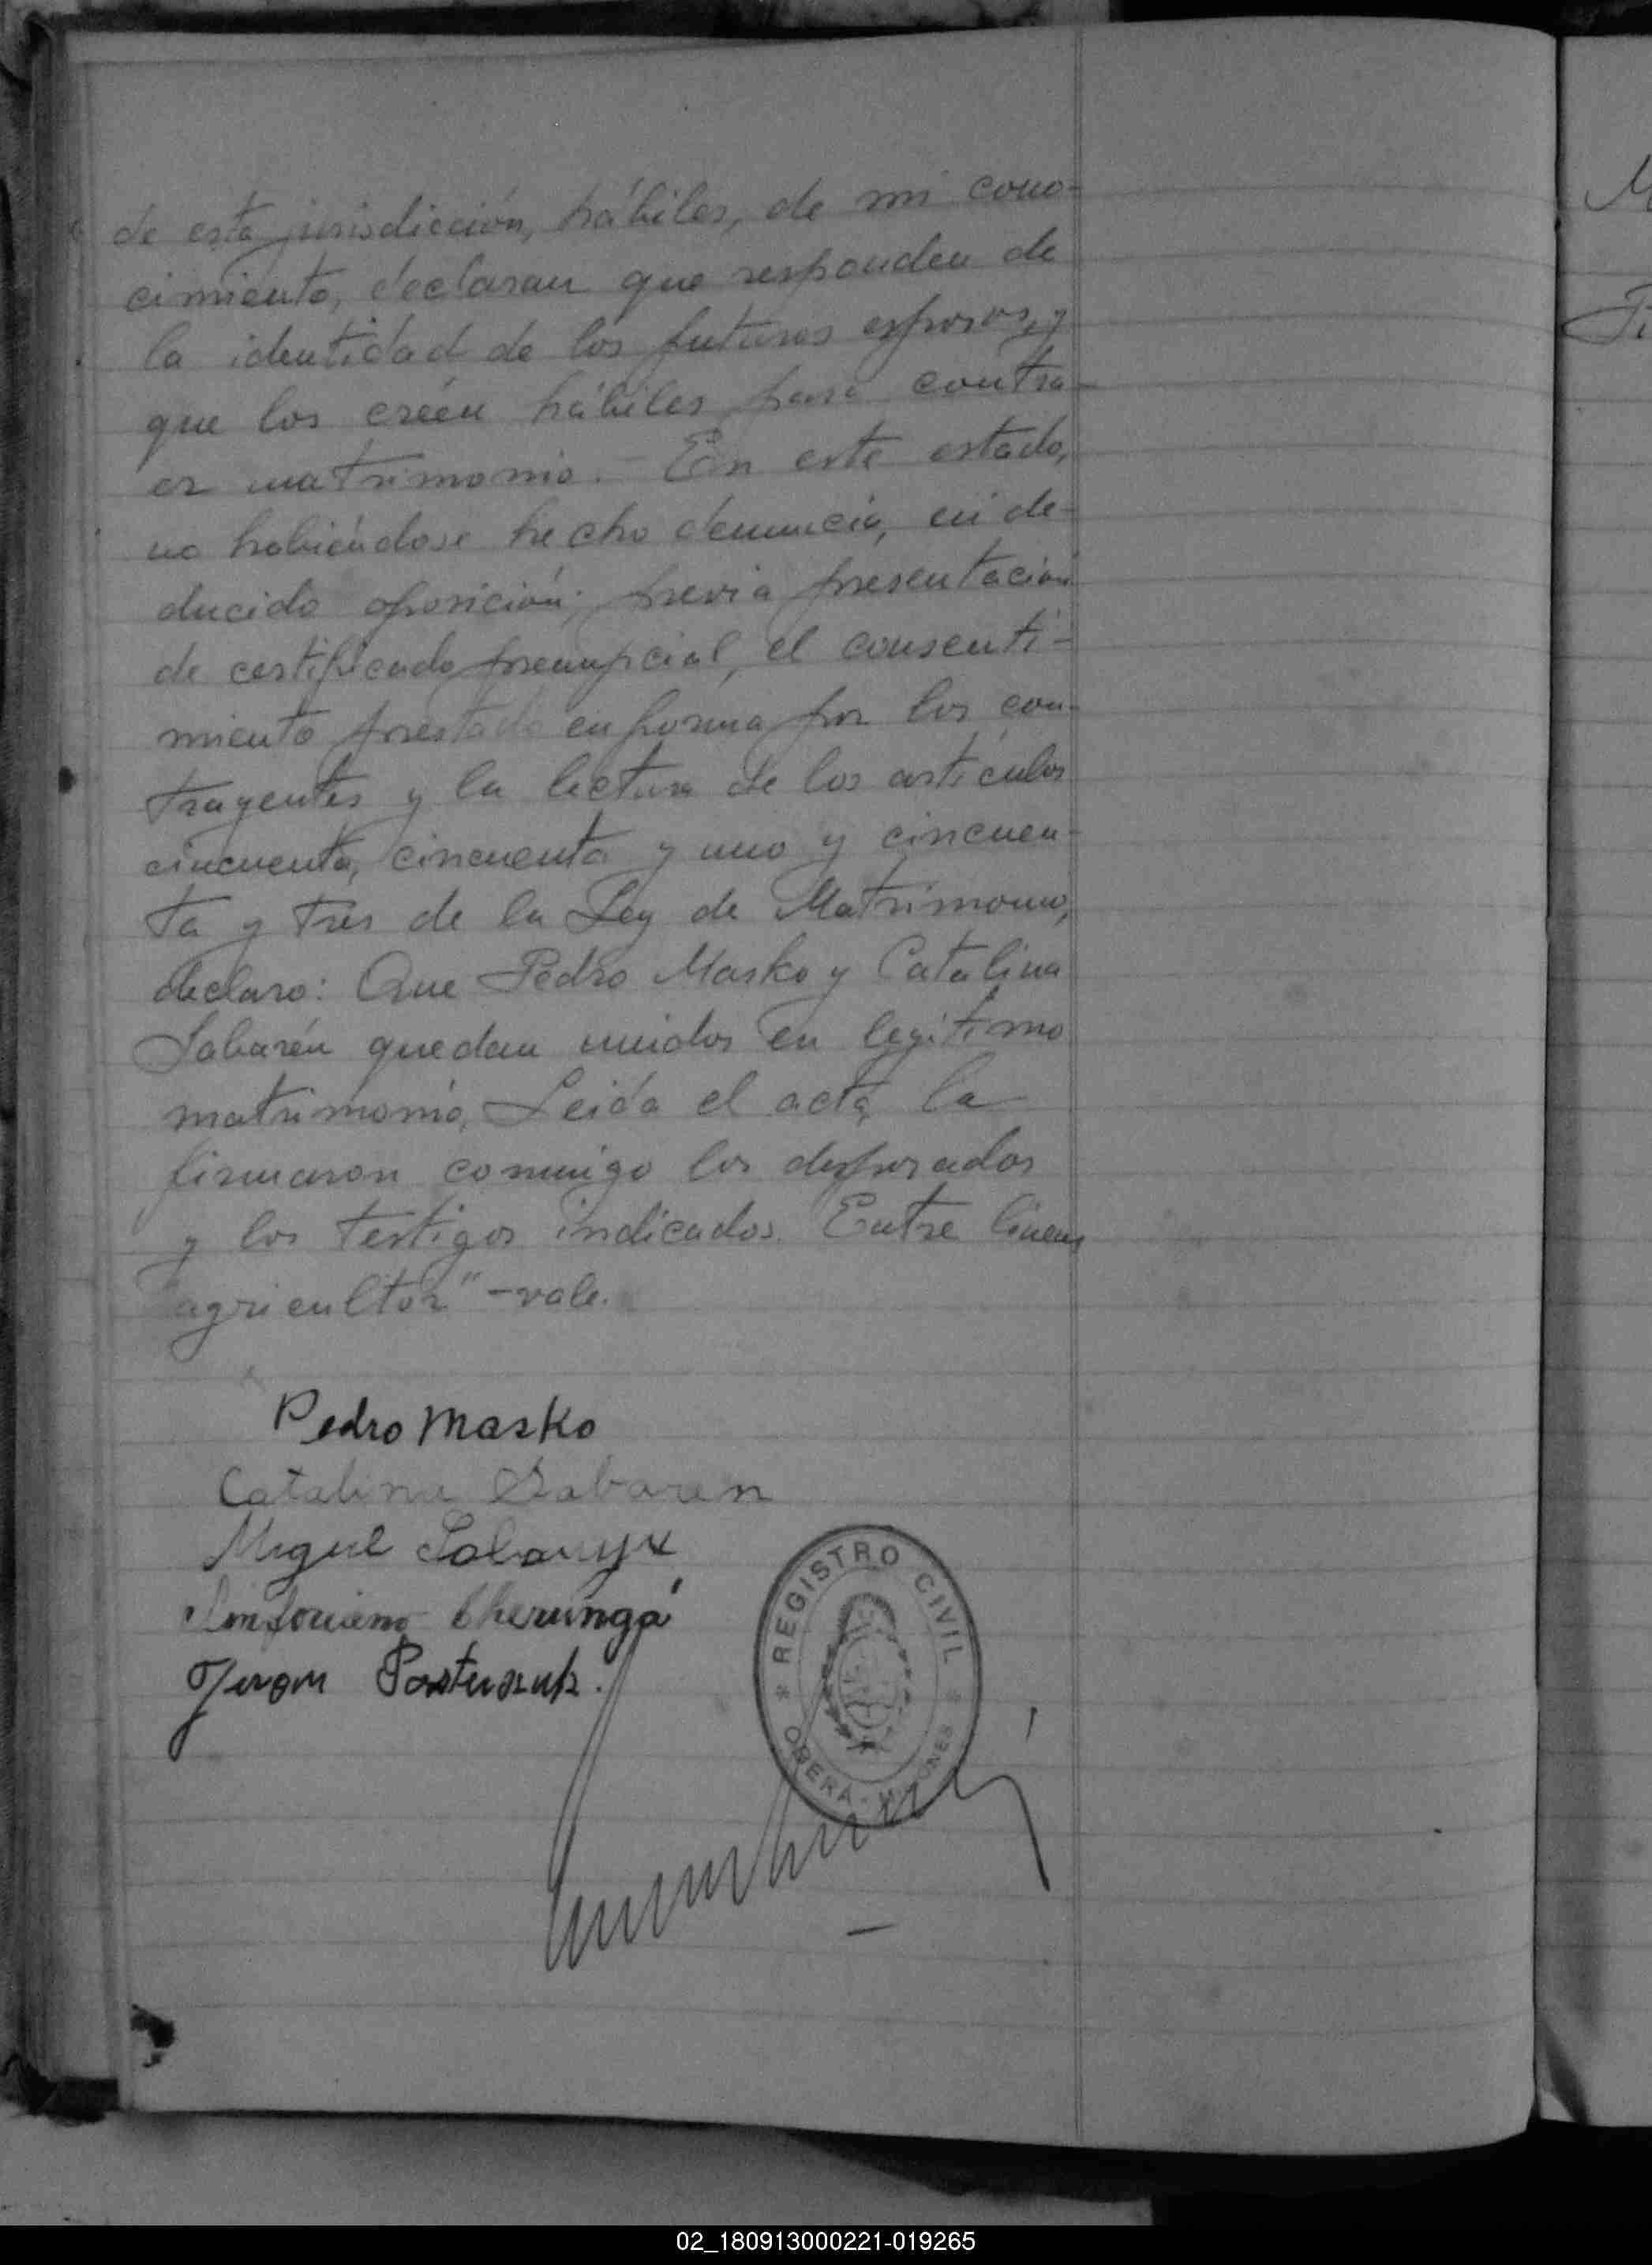 de esta jurisdicción, hábiles, de mi cono-
cimiento, declaran que responden de
la identidad de los futuros esposos, y
que los créen hábiles para contra-
er matrimonio. - En este estado,
no habiéndose hecho denuncia, ni de-
ducido oposición; previa presentación
de certificado prenupcial, el consenti-
miento prestado en forma por los con-
trayentes y la lectura de los artículos
cincuenta, cincuenta y uno y cincuen-
ta y tres de la Ley de Matrimonio,
declaro: Que Pedro Masko y Catalina
Sabarén quedan unidos en legítimo
matrimonio. Leída el acta, la
firmaron conmigo los desposados
y los testigos indicados. Entre líneas
"agricultor" - vale.
Pedro Masko
Catalina Sabaren
Miguel
Sinforiano
Juan
REGISTRO CIVIL
OBERA - MISIONES
M
02_180913000221-019265